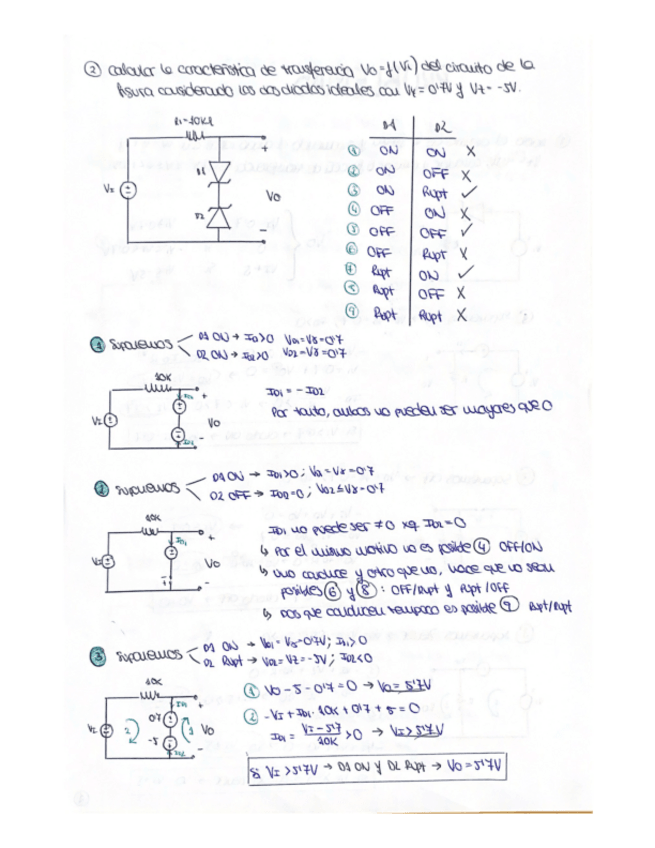 ② Calcular la característica de transferencia Vo=f(Vi) del circuito de la
figura considerando los dos diodos ideales con Vγ=0'7V y Vz=-5V.
R1=10KΩ
D1
D2
VI
Vo
+
-
D1 D2
① ON ON X
② ON OFF X
③ ON Rupt ✓
④ OFF ON X
⑤ OFF OFF ✓
⑥ OFF Rupt X
⑦ Rupt ON ✓
⑧ Rupt OFF X
⑨ Rupt Rupt X
① Suponemos
D1 ON → ID>0 VD1=Vγ=0'7
D2 ON → I2>0 VD2=Vγ=0'7
10K
VI
Vo
+
-
ID1 = - ID2
Por tanto, ambos no pueden ser mayores que 0
② Suponemos
D1 ON → ID1>0 ; Vd1=Vγ=0'7
D2 OFF → ID2=0 ; VD2≤Vγ=0'7
10K
ID1
VI
Vo
+
-
ID1 no puede ser ≠0 xq ID2=0
↳ Por el mismo motivo no es posible ④ OFF/ON
↳ Uno conduce y otro que no, hace que no sean
posibles ⑥ y ⑧ : OFF/Rupt y Rupt/OFF
↳ Dos que conducen tampoco es posible ⑨ Rupt/Rupt
③ Suponemos
D1 ON → VD1=Vγ=0'7V ; ID1>0
D2 Rupt → VD2=Vz=-5V ; ID2<0
10K
ID1
0'7
-5
ID2
VI
Vo
+
-
1
2
① Vo-5-0'7=0 → Vo=5'7V
② -VI+ID1·10K+0'7+5=0
ID1= VI-5'7 / 10K >0 → VI>5'7V
Si VI>5'7V → D1 ON y D2 Rupt → Vo=5'7V